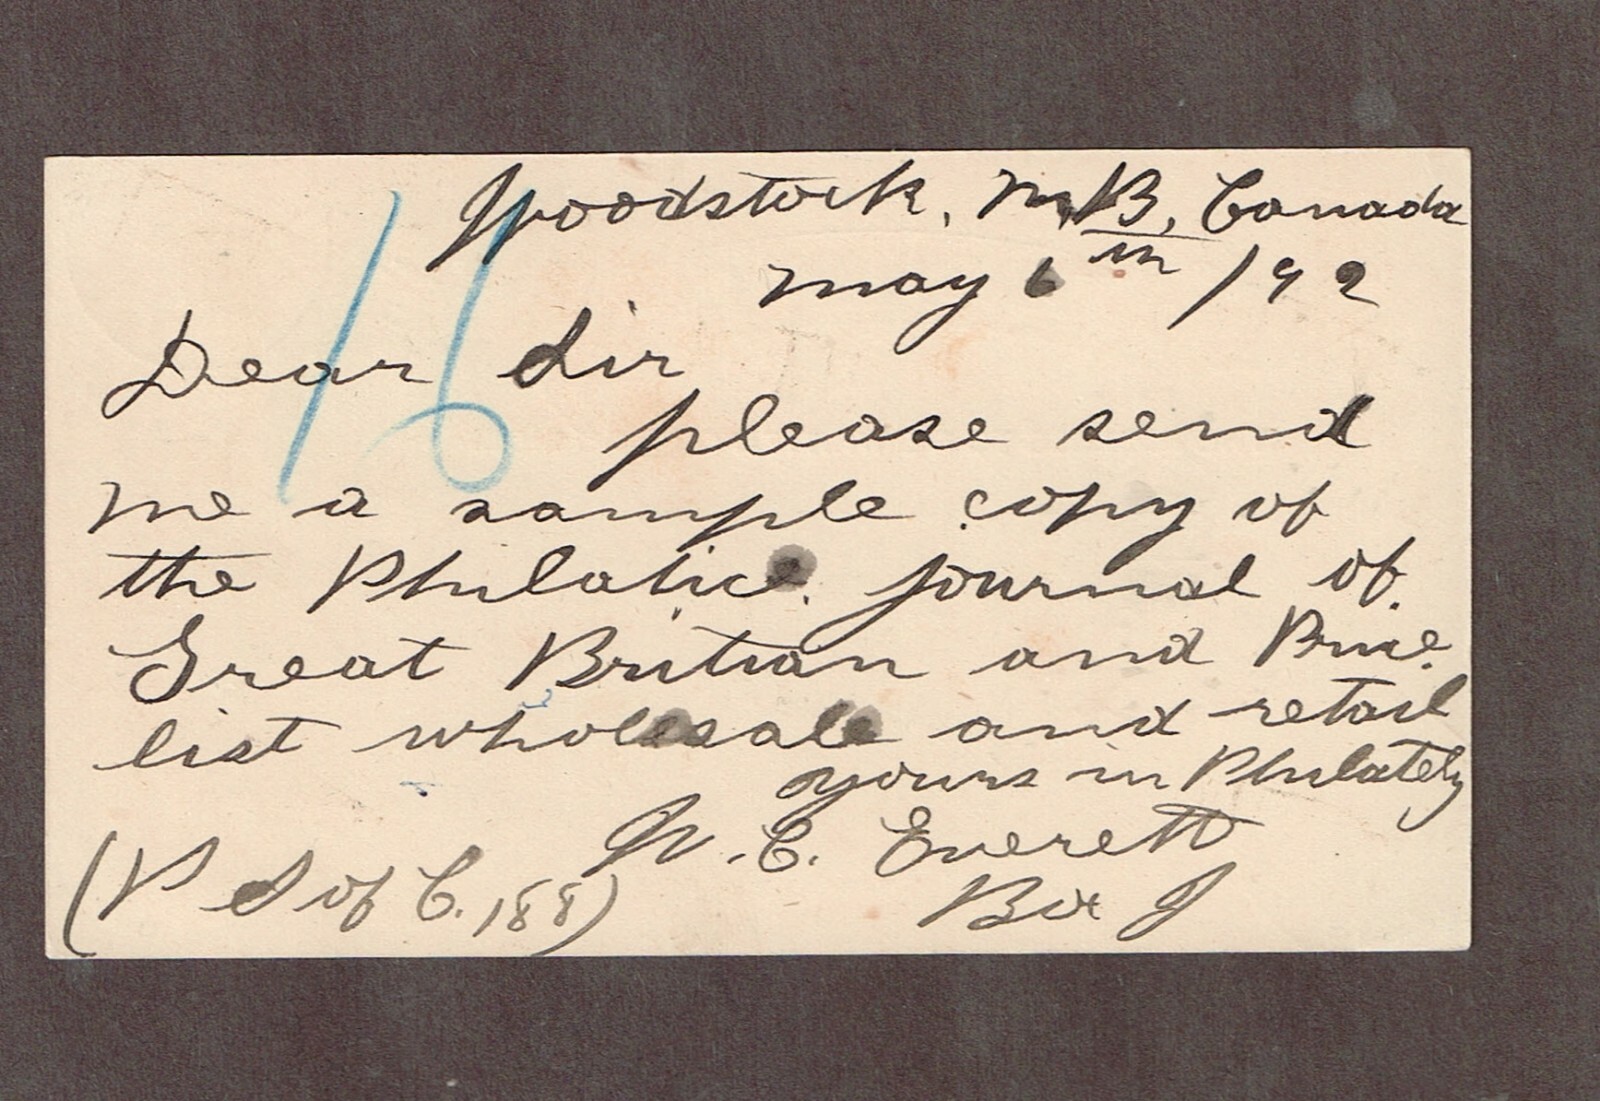 Woodstock, N, B, Canada
May 6th /92
16
Dear Sir
please send
me a sample copy of
the Philatic. Journal of.
Great Britian and Price.
list wholesale and retail
yours in Philately
W. C. Everett
Box J
(P S of C. 188)